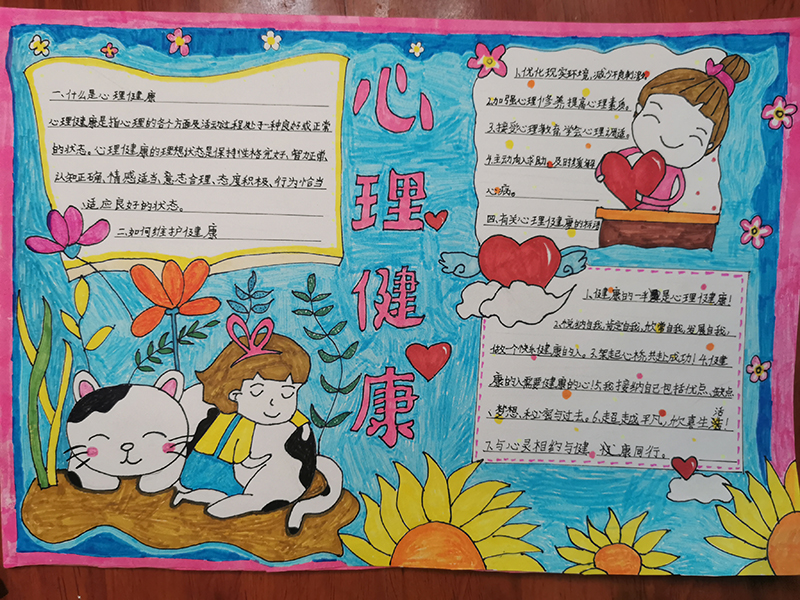 心理健康
一、什么是心理健康
心理健康是指心理的各个方面及活动过程处于一种良好或正常
的状态。心理健康的理想状态是保持性格完好、智力正常、
认知正确、情感适当、意志合理、态度积极、行为恰当
、适应良好的状态。
二、如何维护健康
1.优化现实环境,减少不良刺激
2.加强心理修养,提高心理素质。
3.接受心理教育,学会心理调适。
4.主动向人求助,及时缓解
心病。
四、有关心理健康的标语
1.健康的一半是心理健康!
2.悦纳自我,肯定自我,欣赏自我,发展自我,
做一个快乐健康的人。3.架起心桥,共赴成功!4.健
康的人需要健康的心!5.我接纳自己包括优点、缺点
、梦想、和父母与过去。6.超越平凡,欣真生活!
7.与心灵相约与健康同行。